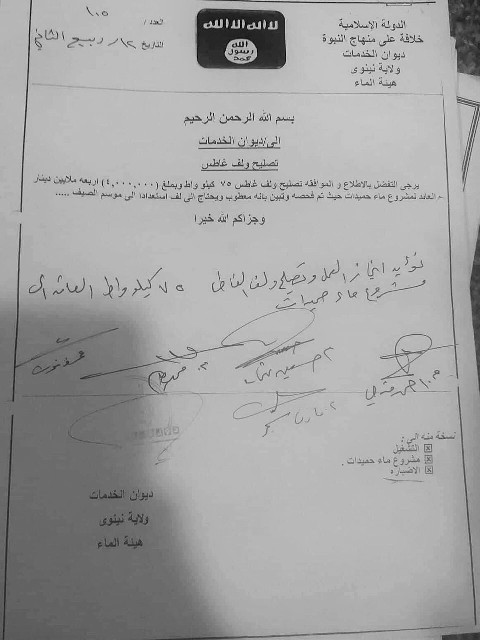 الدولة الاسلامية
خلافة على منهاج النبوة
ديوان الخدمات
ولاية نينوى
هيئة الماء
لا اله الا الله
الله
رسول
محمد
العدد / ١٠٥
التاريخ ١٢/ ربيع الثاني
بسم الله الرحمن الرحيم
الى/ديوان الخدمات
تصليح ولف غاطس
يرجى التفضل بالاطلاع و الموافقه تصليح ولف غاطس ٧٥ كيلو واط وبملغ (٤,٠٠٠,٠٠٠) اربعه ملايين دينار
العائد لمشروع ماء حميدات حيث تم فحصه وتبين بانه معطوب ويحتاج الى لف استعدادا الى موسم الصيف .....
وجزاكم الله خيرا
نؤيد انجاز العمل وتصليح ولف الغاطس ٧٥ كيلو واط العائد الى
مشروع ماء حميدات
نسخة منه الى:
التشغيل
مشروع ماء حميدات .
الاضباره
ديوان الخدمات
ولاية نينوى
هيئة الماء